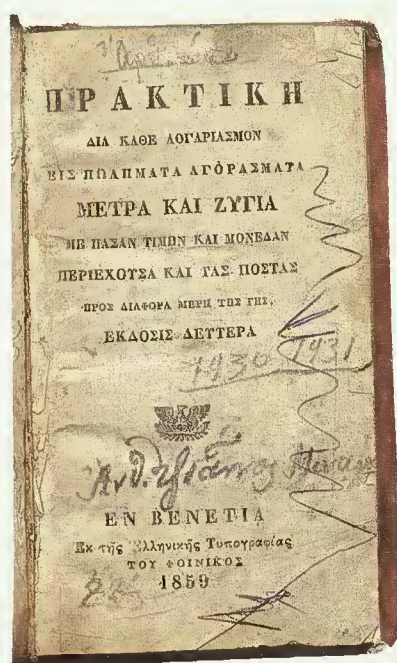 ΠΡΑΚΤΙΚΗ
ΔΙΑ ΚΑΘΕ ΛΟΓΑΡΙΑΣΜΟΝ
ΕΙΣ ΠΩΛΗΜΑΤΑ ΑΓΟΡΑΣΜΑΤΑ
ΜΕΤΡΑ ΚΑΙ ΖΥΓΙΑ
ΜΕ ΠΑΣΑΝ ΤΙΜΗΝ ΚΑΙ ΜΟΝΕΔΑΝ
ΠΕΡΙΕΧΟΥΣΑ ΚΑΙ ΤΑΣ ΠΟΣΤΑΣ
ΠΡΟΣ ΔΙΑΦΟΡΑ ΜΕΡΗ ΤΗΣ ΓΗΣ,
ΕΚΔΟΣΙΣ ΔΕΥΤΕΡΑ
1930 1931
ΕΝ ΒΕΝΕΤΙΑ
Εκ τῆς Ἑλληνικῆς Τυπογραφίας
ΤΟΥ ΦΟΙΝΙΚΟΣ
1859